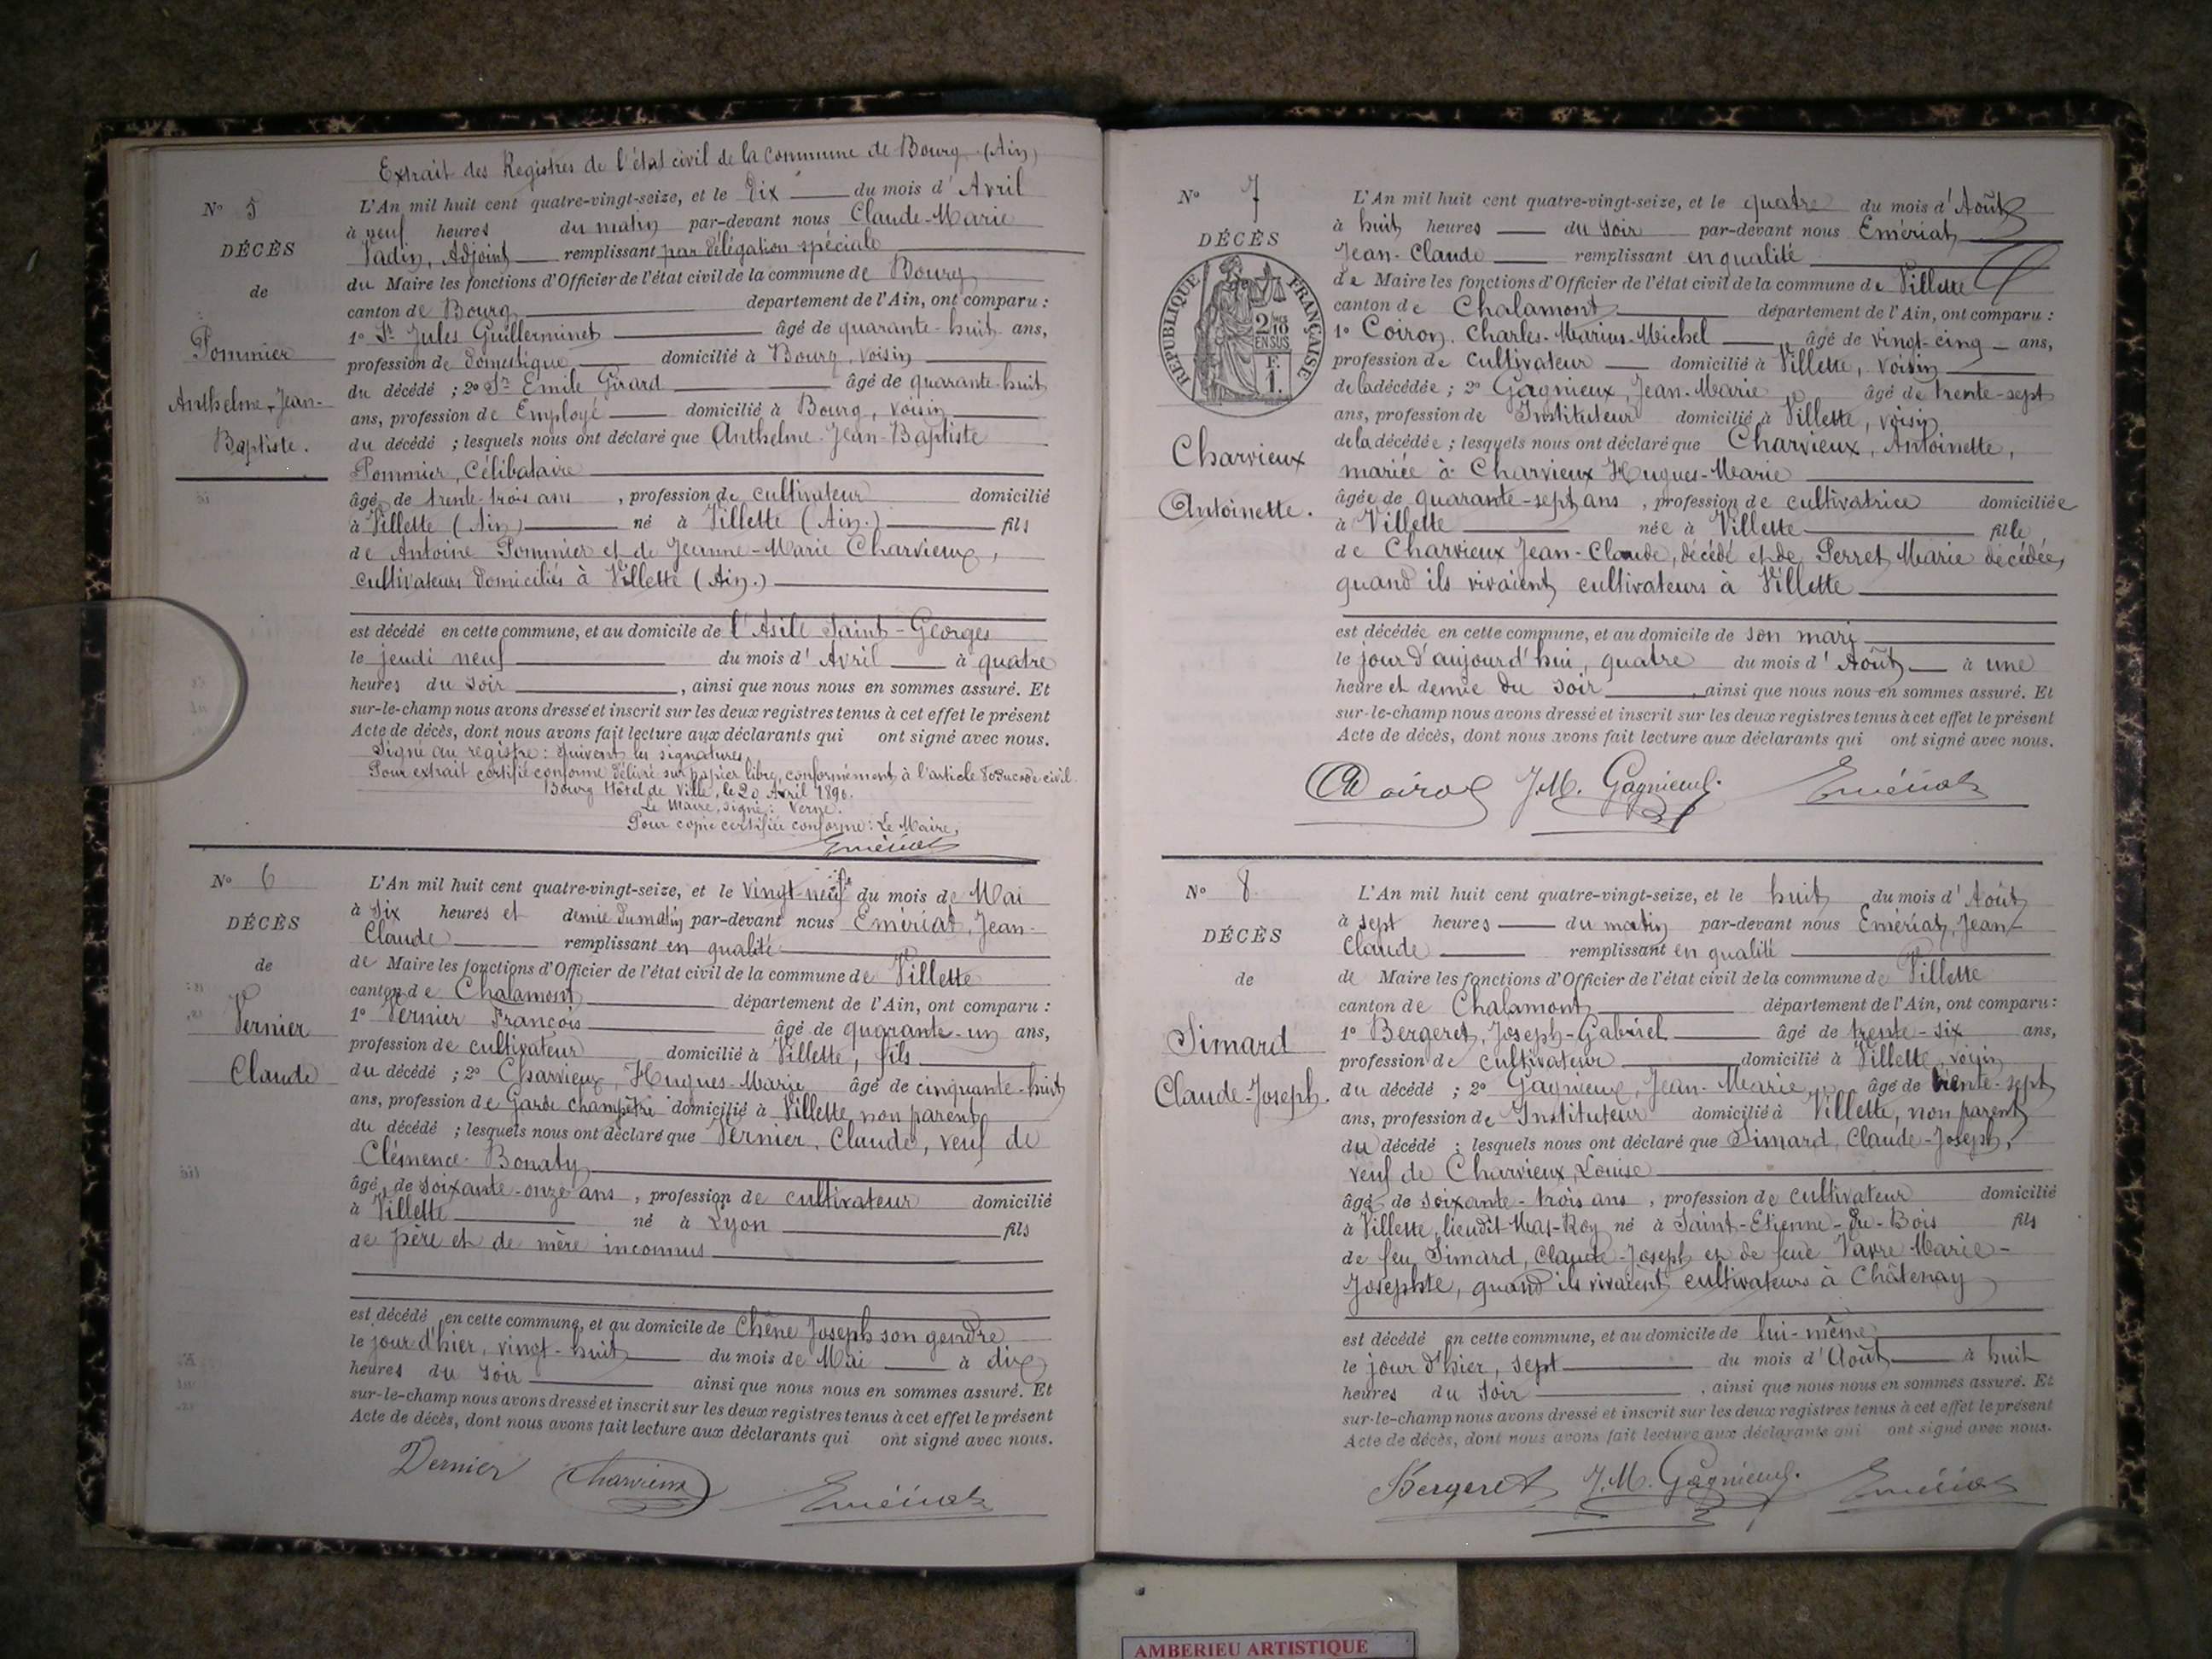 Extrait des Registres de l'état civil de la Commune de Bourg (Ain)
N° 5
DÉCÈS
de
Pommier
Anthelme-Jean-
Baptiste.
L'An mil huit cent quatre-vingt-seize, et le Dix du mois d'Avril
à neuf heures du matin par-devant nous Claude-Marie
Vadin, Adjoint remplissant par délégation spéciale
du Maire les fonctions d'Officier de l'état civil de la commune de Bourg
canton de Bourg département de l'Ain, ont comparu :
1° Sr Jules Guillerminet âgé de quarante-huit ans,
profession de domestique domicilié à Bourg, voisin
du décédé ; 2° Sr Emile Girard âgé de quarante-huit
ans, profession de Employé domicilié à Bourg, voisin
du décédé ; lesquels nous ont déclaré que Anthelme-Jean-Baptiste
Pommier, Célibataire
âgé de trente-trois ans, profession de cultivateur domicilié
à Villette (Ain) né à Villette (Ain.) fils
de Antoine Pommier et de Jeanne-Marie Charvieux,
cultivateurs domiciliés à Villette (Ain.)
est décédé en cette commune, et au domicile de l'Asile Saint-Georges
le jeudi neuf du mois d'Avril à quatre
heures du soir, ainsi que nous nous en sommes assuré. Et
sur-le-champ nous avons dressé et inscrit sur les deux registres tenus à cet effet le présent
Acte de décès, dont nous avons fait lecture aux déclarants qui ont signé avec nous.
Signé au registre : suivent les signatures
Pour extrait certifié conforme délivré sur papier libre, conformément à l'article 80 du code civil.
Bourg Hôtel de Ville, le 20 Avril 1896.
Le Maire, signé : Verne.
Pour copie certifiée conforme : Le Maire,
Emériat
N° 6
DÉCÈS
de
Vernier
Claude
L'An mil huit cent quatre-vingt-seize, et le vingt-neuf du mois de Mai
à six heures et demie du matin par-devant nous Emériat, Jean-
Claude remplissant en qualité
de Maire les fonctions d'Officier de l'état civil de la commune de Villette
canton de Chalamont département de l'Ain, ont comparu :
1° Vernier François âgé de quarante-un ans,
profession de cultivateur domicilié à Villette, fils
du décédé ; 2° Charvieux, Hugues-Marie âgé de cinquante-huit
ans, profession de Garde champêtre domicilié à Villette, non parent
du décédé ; lesquels nous ont déclaré que Vernier, Claude, veuf de
Clémence Bonaty
âgé de soixante-onze ans, profession de cultivateur domicilié
à Villette né à Lyon fils
de père et de mère inconnus
est décédé en cette commune, et au domicile de Chêne Joseph son gendre
le jour d'hier, vingt-huit du mois de Mai à dix
heures du soir ainsi que nous nous en sommes assuré. Et
sur-le-champ nous avons dressé et inscrit sur les deux registres tenus à cet effet le présent
Acte de décès, dont nous avons fait lecture aux déclarants qui ont signé avec nous.
Vernier Charvieux Emériat
N° 7
DÉCÈS
RÉPUBLIQUE FRANÇAISE
2/10
EN SUS
F.
1.
Charvieux
Antoinette.
L'An mil huit cent quatre-vingt-seize, et le quatre du mois d'Août
à huit heures du soir par-devant nous Emériat,
Jean-Claude remplissant en qualité
de Maire les fonctions d'Officier de l'état civil de la commune de Villette
canton de Chalamont département de l'Ain, ont comparu :
1° Coiron, Charles-Marius-Michel âgé de vingt-cinq ans,
profession de cultivateur domicilié à Villette, voisin
de la décédée ; 2° Gagnieux, Jean-Marie âgé de trente-sept
ans, profession de Instituteur domicilié à Villette, voisin
de la décédée ; lesquels nous ont déclaré que Charvieux, Antoinette,
mariée à Charvieux Hugues-Marie
âgée de quarante-sept ans, profession de cultivatrice domiciliée
à Villette née à Villette fille
de Charvieux Jean-Claude, décédé et de Perret Marie décédée,
quand ils vivaient cultivateurs à Villette
est décédée en cette commune, et au domicile de son mari
le jour d'aujourd'hui, quatre du mois d'Août à une
heure et demie du soir, ainsi que nous nous en sommes assuré. Et
sur-le-champ nous avons dressé et inscrit sur les deux registres tenus à cet effet le présent
Acte de décès, dont nous avons fait lecture aux déclarants qui ont signé avec nous.
Coiron J.M. Gagnieux. Emériat
N° 8
DÉCÈS
de
Simard
Claude-Joseph.
L'An mil huit cent quatre-vingt-seize, et le huit du mois d'Août
à sept heures du matin par-devant nous Emériat, Jean-
Claude remplissant en qualité
de Maire les fonctions d'Officier de l'état civil de la commune de Villette
canton de Chalamont département de l'Ain, ont comparu :
1° Bergeret, Joseph-Gabriel âgé de trente-six ans,
profession de cultivateur domicilié à Villette, voisin
du décédé ; 2° Gagnieux, Jean-Marie, âgé de trente-sept
ans, profession de Instituteur domicilié à Villette, non parent
du décédé ; lesquels nous ont déclaré que Simard, Claude-Joseph,
veuf de Charvieux, Louise
âgé de soixante-trois ans, profession de cultivateur domicilié
à Villette, lieudit Mas-Roy né à Saint-Etienne-du-Bois fils
de feu Simard, Claude-Joseph et de feue Varre Marie-
Josephte, quand ils vivaient cultivateurs à Châtenay
est décédé en cette commune, et au domicile de lui-même
le jour d'hier, sept du mois d'Août à huit
heures du soir, ainsi que nous nous en sommes assuré. Et
sur-le-champ nous avons dressé et inscrit sur les deux registres tenus à cet effet le présent
Acte de décès, dont nous avons fait lecture aux déclarants qui ont signé avec nous.
Bergeret J.M. Gagnieux. Emériat
AMBERIEU ARTISTIQUE